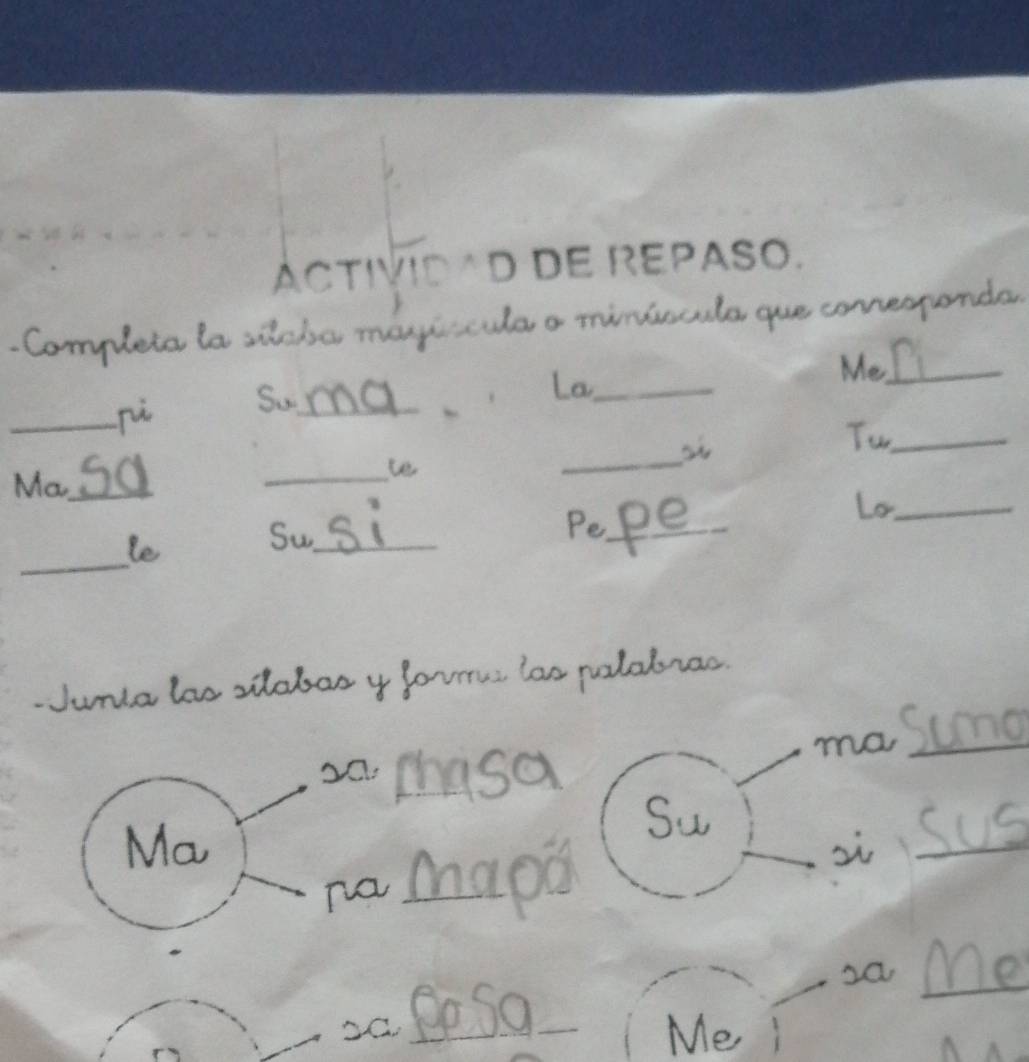 ACTIVIDAD DE REPASO.
-Completa la sílaba mayúscula o minúscula que corresponda.
____pi Su ma La____ Me Pi
Ma sa ____te ____si Tu____
____le Su si Pe pe Lo____
-Junta las sílabas y forma las palabras.
sa masa ma Suma
Ma Su
pa mapa si Sus
sa Pesa sa Me
Me